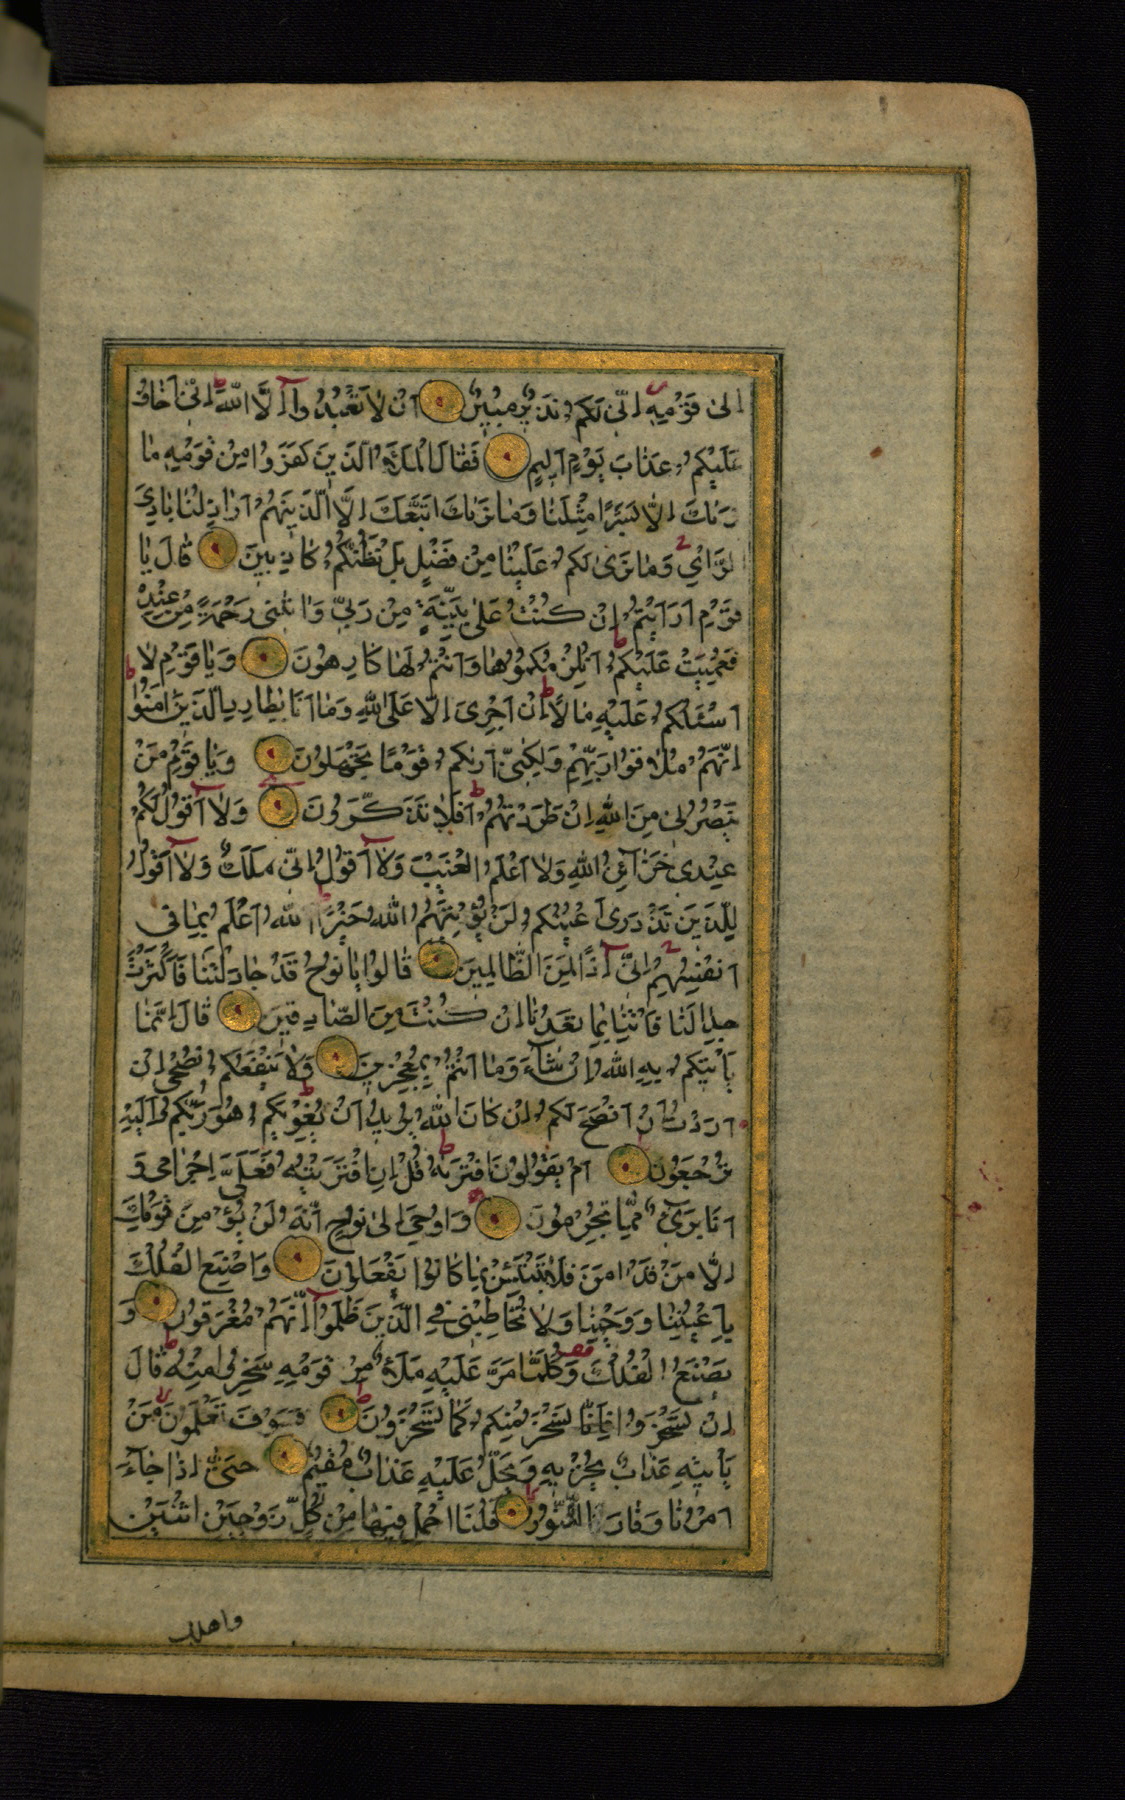 اِلىٰ قَوْمِهٖ اِنّى لَكُمْ نَذيرٌ مُبينٌ اَنْ لاٰ تَعْبُدُوآ اِلَّا اللّٰهَ اِنّى اَخٰافُ
عَلَيْكُمْ عَذٰابَ يَوْمٍ اَليمٍ فَقٰالَ الْمَلَأُ الَّذينَ كَفَرُوا مِنْ قَوْمِهٖ مٰا
نَرٰيكَ اِلّٰا بَشَرًا مِثْلَنٰا وَمٰا نَرٰيكَ اتَّبَعَكَ اِلَّا الَّذينَ هُمْ اَرٰاذِلُنٰا بٰادِيَ
الرَّاْيِ وَمٰا نَرىٰ لَكُمْ عَلَيْنٰا مِنْ فَضْلٍ بَلْ نَظُنُّكُمْ كٰاذِبينَ قٰالَ يٰا
قَوْمِ اَرَاَيْتُمْ اِنْ كُنْتُ عَلىٰ بَيِّنَةٍ مِنْ رَبّى وَاٰتٰنى رَحْمَةً مِنْ عِنْدِهٖ
فَعُمِّيَتْ عَلَيْكُمْ اَنُلْزِمُكُمُوهٰا وَاَنْتُمْ لَهٰا كٰارِهُونَ وَيٰا قَوْمِ لاٰ
اَسْئَلُكُمْ عَلَيْهِ مٰالًا اِنْ اَجْرِىَ اِلّٰا عَلَى اللّٰهِ وَمٰا اَنَا بِطٰارِدِ الَّذينَ اٰمَنُوا
اِنَّهُمْ مُلٰاقُوا رَبِّهِمْ وَلٰكِنّى اَرٰيكُمْ قَوْمًا تَجْهَلُونَ وَيٰا قَوْمِ مَنْ
يَنْصُرُنى مِنَ اللّٰهِ اِنْ طَرَدْتُهُمْ اَفَلاٰ تَذَكَّرُونَ وَلاٰ اَقُولُ لَكُمْ
عِنْدى خَزٰآئِنُ اللّٰهِ وَلاٰ اَعْلَمُ الْغَيْبَ وَلاٰ اَقُولُ اِنّى مَلَكٌ وَلاٰ اَقُولُ
لِلَّذينَ تَزْدَرى اَعْيُنُكُمْ لَنْ يُؤْتِيَهُمُ اللّٰهُ خَيْرًا اَللّٰهُ اَعْلَمُ بِمٰا فى
اَنْفُسِهِمْ اِنّى اِذًا لَمِنَ الظّٰالِمينَ قٰالُوا يٰا نُوحُ قَدْ جٰادَلْتَنٰا فَاَكْثَرْتَ
جِدٰالَنٰا فَاْتِنٰا بِمٰا تَعِدُنٰا اِنْ كُنْتَ مِنَ الصّٰادِقينَ قٰالَ اِنَّمٰا
يَاْتيكُمْ بِهِ اللّٰهُ اِنْ شٰآءَ وَمٰا اَنْتُمْ بِمُعْجِزينَ وَلاٰ يَنْفَعُكُمْ نُصْحى اِنْ
اَرَدْتُ اَنْ اَنْصَحَ لَكُمْ اِنْ كٰانَ اللّٰهُ يُريدُ اَنْ يُغْوِيَكُمْ هُوَ رَبُّكُمْ وَاِلَيْهِ
تُرْجَعُونَ اَمْ يَقُولُونَ افْتَرٰيهُ قُلْ اِنِ افْتَرَيْتُهُ فَعَلَىَّ اِجْرٰامى وَ
اَنَا بَرىءٌ مِمّٰا تُجْرِمُونَ وَاُوحِىَ اِلىٰ نُوحٍ اَنَّهُ لَنْ يُؤْمِنَ مِنْ قَوْمِكَ
اِلّٰا مَنْ قَدْ اٰمَنَ فَلاٰ تَبْتَئِسْ بِمٰا كٰانُوا يَفْعَلُونَ وَاصْنَعِ الْفُلْكَ
بِاَعْيُنِنٰا وَوَحْيِنٰا وَلاٰ تُخٰاطِبْنى فِى الَّذينَ ظَلَمُوا اِنَّهُمْ مُغْرَقُونَ وَ
يَصْنَعُ الْفُلْكَ وَكُلَّمٰا مَرَّ عَلَيْهِ مَلَأٌ مِنْ قَوْمِهٖ سَخِرُوا مِنْهُ قٰالَ
اِنْ تَسْخَرُوا مِنّٰا فَاِنّٰا نَسْخَرُ مِنْكُمْ كَمٰا تَسْخَرُونَ فَسَوْفَ تَعْلَمُونَ مَنْ
يَاْتيهِ عَذٰابٌ يُخْزيهِ وَيَحِلُّ عَلَيْهِ عَذٰابٌ مُقيمٌ حَتّىٰ اِذٰا جٰآءَ
اَمْرُنٰا وَفٰارَ التَّنُّورُ قُلْنَا احْمِلْ فيهٰا مِنْ كُلٍّ زَوْجَيْنِ اثْنَيْنِ
واهلك